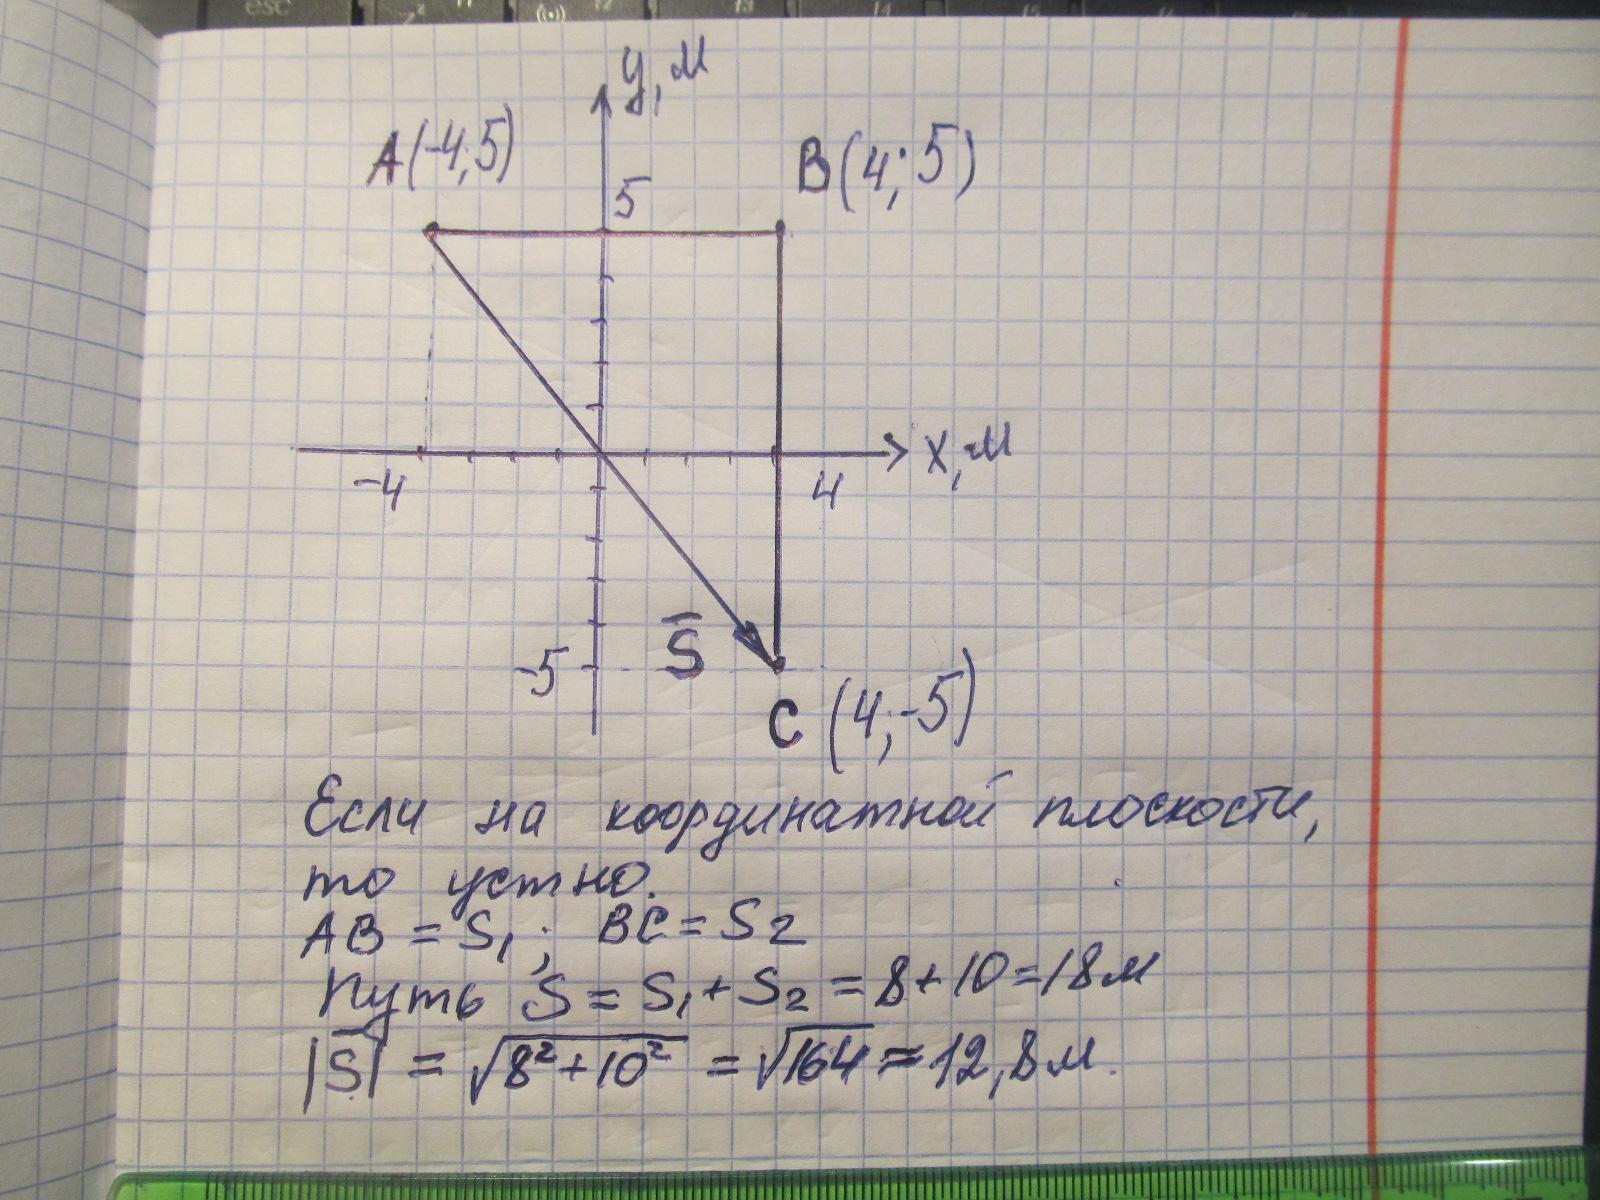 y, м
A(-4;5)
B(4;5)
5
x, м
-4
4
-5
S̅
C (4;-5)
Если на координатной плоскости,
то устно.
AB = S₁; BC = S₂
Путь S = S₁ + S₂ = 8 + 10 = 18 м
|S̅| = √8² + 10² = √164 ≈ 12,8 м.